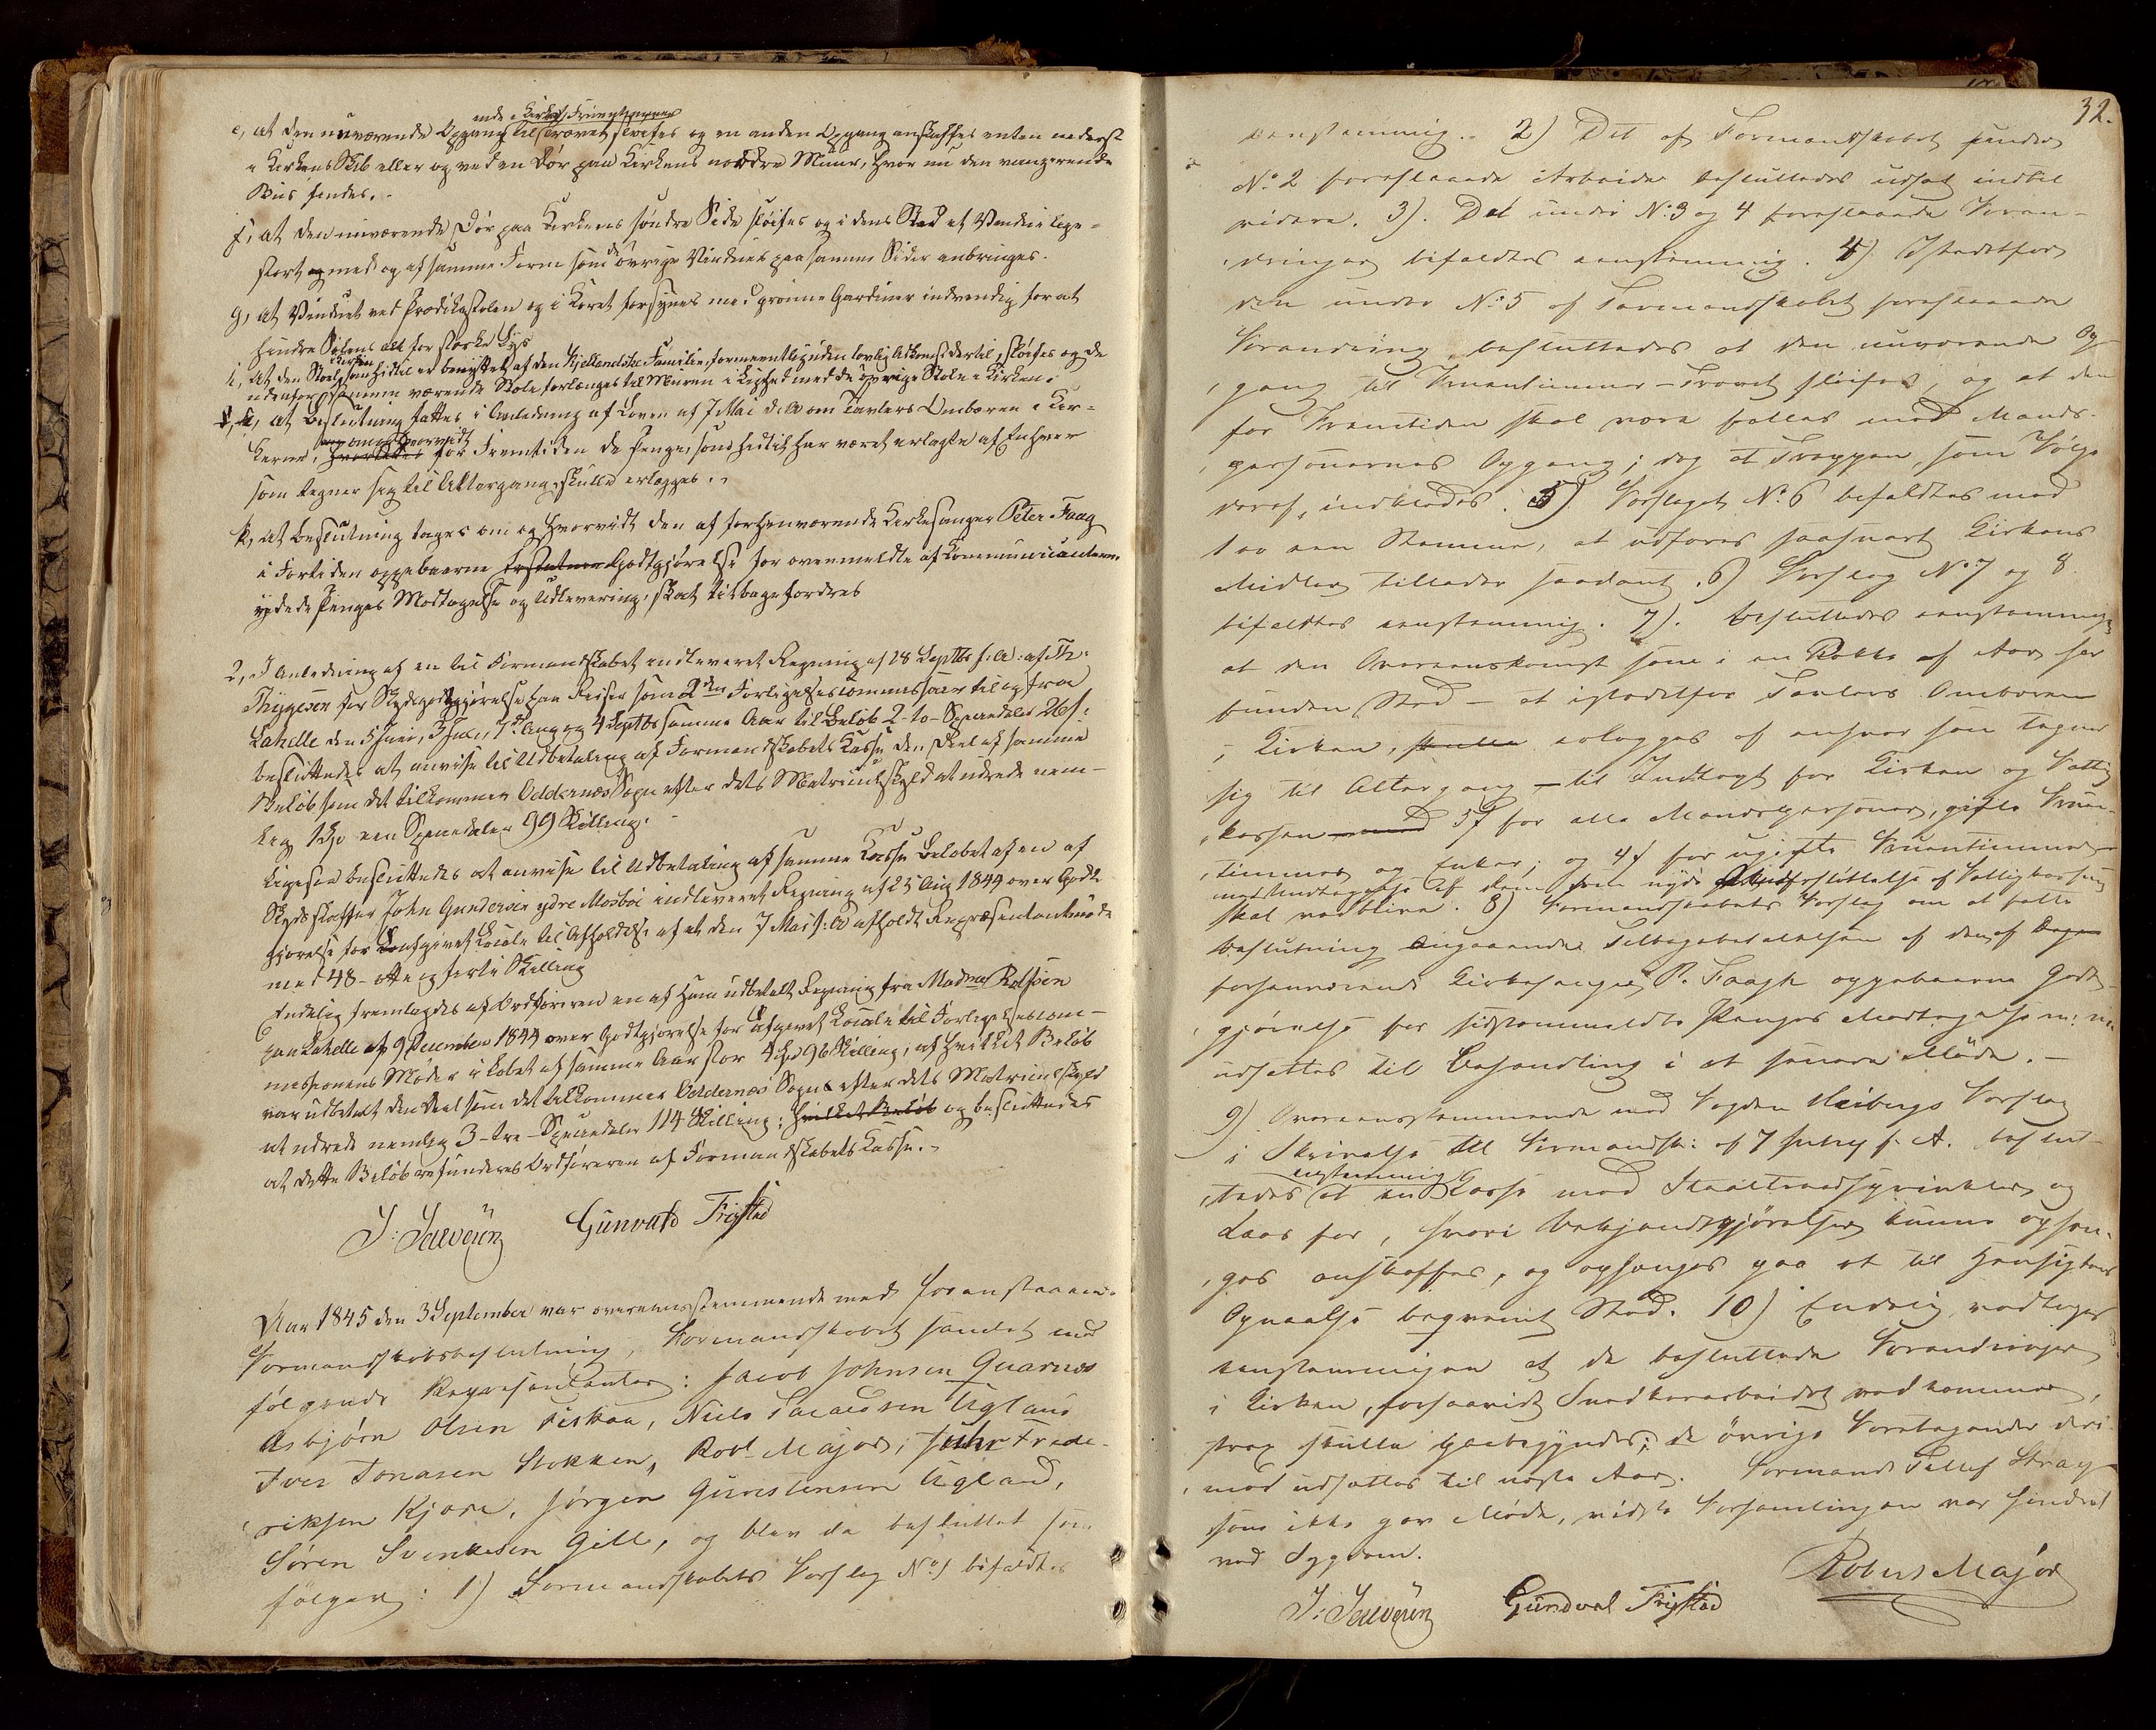 e, at den nuværende Opgang til Pravet sløifes og en anden Opgang anskaffes enten nederst
i Kirkens Skib eller og ved en Dør paa Kirkens nordre Muur, hvor nu den vangerende
Biis findes. -
f, at den nuværende Dør paa Kirkens søndre Side sløifes og i dens Sted et Vindue lige-
stort og med og af samme Form som de øvrige Vinduer paa samme Sider anbringes.
g, at Vinduet ved Prædikestolen og i Koret forsynes med grønne Gardiner indvendig for at
hindre Solens alt for stærke Lys
i, at den Stoel i Kirken som hidtil er benyttet af den Kjellandske Familie, formeentlig uden lovlig Adkomst dertil, sløifes og de
udenfor samme værende Stole forlænges til Muren i Lighed med de øvrige Stole i Kirken.
k, at Beslutning fattes i Anledning af Loven af 7 Mai d.A. om Tavlers Ombæren i Kir-
kerne, om og hvorvidt for Fremtiden de Penge, som hidtil har været erlagte af Enhver
som tegner sig til Altergang, skulle erlægges. -
k, at Beslutning tages om og hvorvidt den af forhenværende Kirkesanger Peter Faag
i Fortiden oppebaarne Godtgjørelse for ovenmeldte af Communicanterne
ydede Penges Modtagelse og Udlevering, skal tilbagefordres
2, I Anledning af en til Formandskabet indleveret Regning af 28 Septbr f.A. af Th.
Thygesen for Skydsgodtgjørelse paa Reiser som 2den Forligelsescommissair til og fra
Lahelle den 5 Juni, 3 Juli, 7 Aug og 4 Septbr samme Aar til Beløb 2 - to - Speciedaler 26 s:
besluttedes at anvise til Udbetaling af Formandskabets Kasse den Deel af samme
Beløb som det tilkommer Oddernes Sogn efter dets Matriculskyld at udrede nem-
lig 1 Spd een Speciedaler 99 Skilling.
Ligesaa besluttedes at anvise til Udbetaling af samme Kasse Beløbet af en af
Skydsskaffer John Gundersen ydre Mosbøe indleveret Regning af 25 Aug 1844 over Godt-
gjørelse for afgivet Locale til Afholdelse af et den 7 Mai f.A. afholdt Repræsentantmøde
med 48 - otte og førti Skilling
Endelig fremlagdes af Ordføreren en af ham udbetalt Regning fra Madme Rolfsen
paa Lahelle af 9 December 1844 over Godtgjørelse for afgivet Locale til Forligelsescom-
missionens Møder i Løbet af samme Aar stor 4 Spd 96 Skilling, af hvilket Beløb
var udbetalt den Deel som det tilkommer Oddernes Sogn efter dets Matriculskyld
at udrede nemlig 3 - tre - Speciedaler 114 Skilling; hvilket Beløb og besluttedes
at dette Beløb refunderes Ordføreren af Formandskabets Casse. -
Gunvald Frigstad
Aar 1845 den 3 September var overeensstemmende med foranstaaende
Formandskabsbeslutning, Formandskabet samlet med
følgende Repræsentanter: Jacob Johnsen Quarnes
Asbjørn Olsen Fiskaa, Niels Salvesen Ugland
Iver Tønnesen Stokken, Robt Major, Frede-
riksen Kjære, Jørgen Gunstensen Ugland,
Søren Svenkesen Gill, og blev da besluttet som
følger: 1) Formandskabets Forslag No 1 bifaldtes
32.
eenstemmig. 2) Det af Formandskabet under
No 2 foreslaaede Arbeide besluttedes udsat indtil
videre. 3). Det under No 3 og 4 foreslaaede Foran-
dringer bifaldtes eenstemmig. 4) Istedetfor
den under No 5 af Formandskabet foreslaaede
Forandring besluttedes at den nuværende Op-
gang til Fruentimmer-Pravet sløifes, og at den
for Fremtiden skal være fælles med Mands-
personernes Opgang; dog at Trappen, som Følge
deraf, indklædes. 5) Forslaget No 6 bifaldtes mod
een Stemme, at udføres saasnart Kirkens
Midler tillader saadant. 6) Forslag No 7 og 8
bifaldtes eenstemmig. 7). besluttedes eenstemmigen
at den Overeenskomst som i en Række af Aar har
funden Sted - at istedetfor Tavlers Ombæren
i Kirken, erlægges af enhver som tegner
sig til Altergang - til Indtægt for Kirken og Fattig
kassen 5 s for alle Mandspersoner, gifte Fruen-
timmer og Enker, og 4 s for ugifte Fruentimmer
med Undtagelse af dem som nyde Understøttelse af Fattigkassen
skal vedblive. 8) Formandskabets Forslag om at fatte
Beslutning angaaende Tilbagebetalelsen af den af
forhenværende Kirkesanger P. Faagh oppebaarne Godt-
gjørelse for sidstommeldte Penges Modtagelse m: m:
udsættes til Behandling i et senere Møde. -
9) Overeensstemmende med Fogden Heibergs Forslag
i Skrivelse til Formandsk: af 7 July f. A. beslut-
tedes eenstemmig at en Casse med Staaltraadsprinkler og
Laas for, hvori Bekjendtgjørelser kunne ophæn-
ges anskaffes, og ophænges paa et til Hensigtens
Opnaaelse beqvemt Sted. 10) Endelig vedtoges
eenstemmigen at de besluttede Forandringer
i Kirken, forsaavidt Snedkerarbeidet vedkommer,
strax skulle paabegyndes; de øvrige Foretagender deri-
mod udsættes til næste Aar. Formand Tellef Stray
som ikke gav Møde, vidste Forsamlingen var hindret
ved Sygdom.
Gundval Frigstad
Robert Major